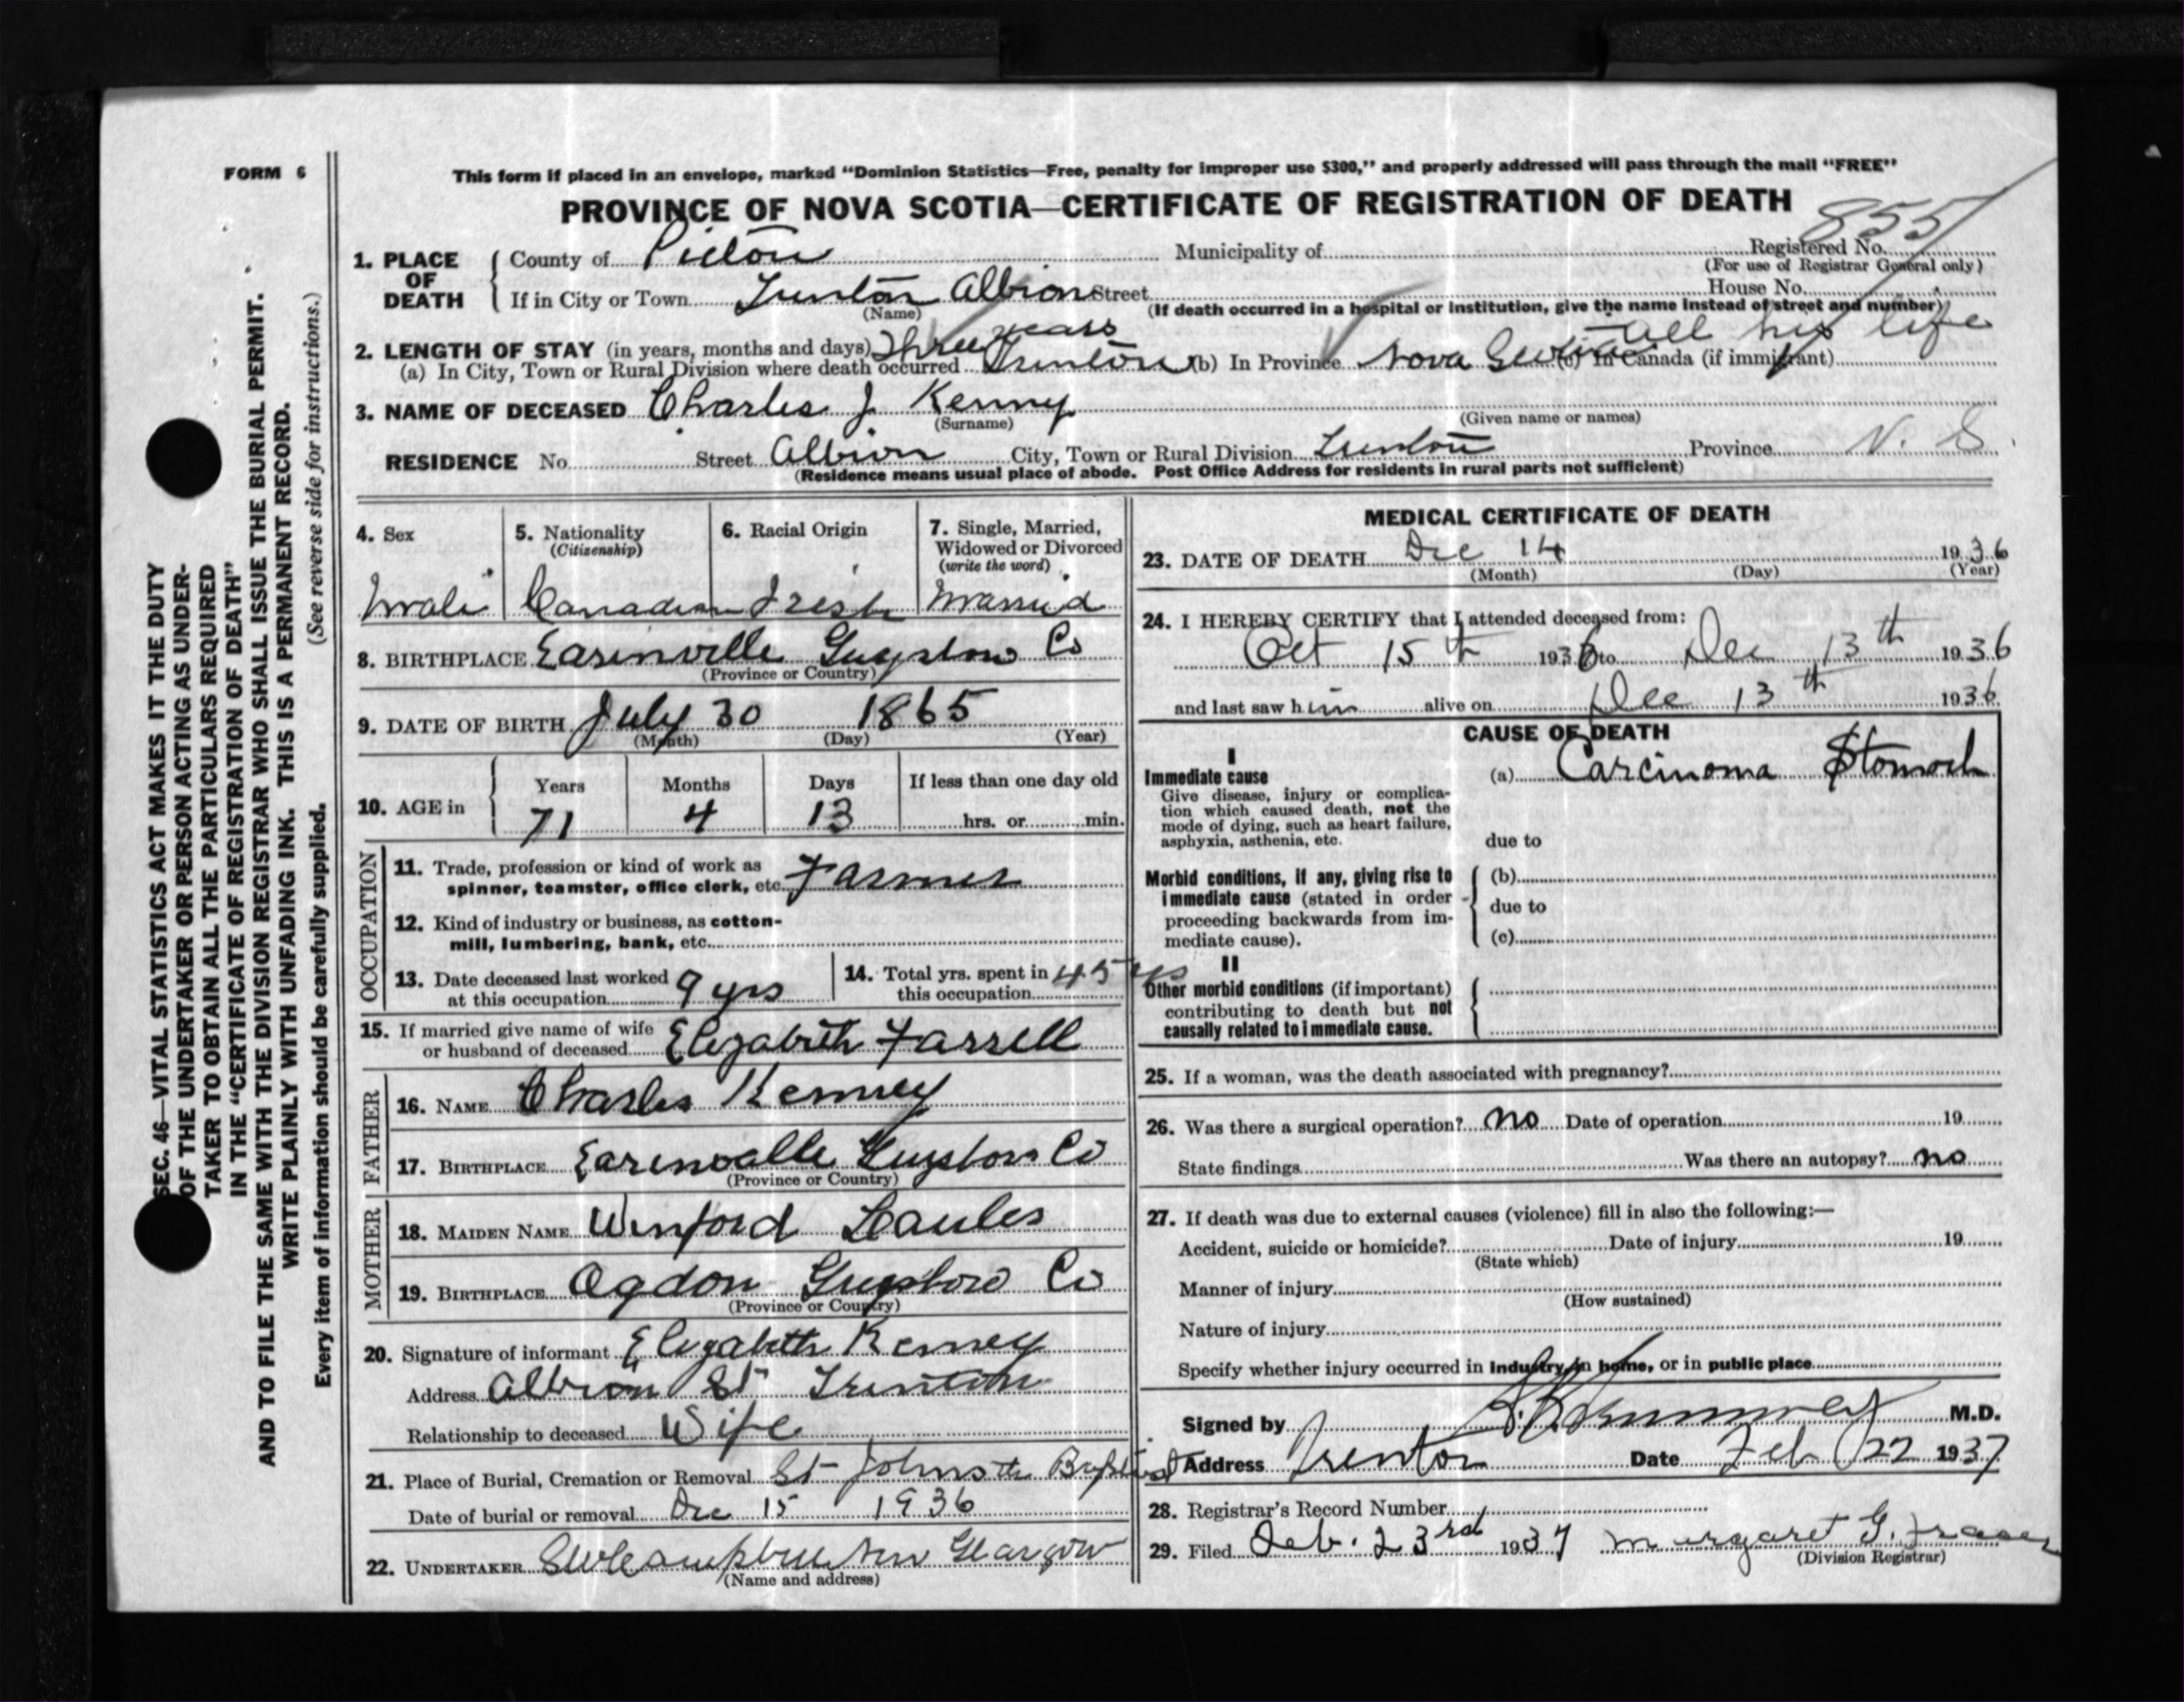 FORM 6
This form if placed in an envelope, marked “Dominion Statistics—Free, penalty for improper use $300,” and properly addressed will pass through the mail “FREE”
PROVINCE OF NOVA SCOTIA—CERTIFICATE OF REGISTRATION OF DEATH
855
1. PLACE OF DEATH County of Pictou Municipality of Registered No.
(For use of Registrar General only)
If in City or Town Trenton Albion Street House No.
(Name) (If death occurred in a hospital or institution, give the name instead of street and number)
2. LENGTH OF STAY (in years, months and days) Three years all his life
(a) In City, Town or Rural Division where death occurred Trenton (b) In Province Nova Scotia (c) In Canada (if immigrant)
3. NAME OF DECEASED Charles J. Kenny
(Surname) (Given name or names)
RESIDENCE No. Street Albion City, Town or Rural Division Trenton Province N. S.
(Residence means usual place of abode. Post Office Address for residents in rural parts not sufficient)
4. Sex 5. Nationality (Citizenship) 6. Racial Origin 7. Single, Married, Widowed or Divorced (write the word)
Male Canadian Irish Married
8. BIRTHPLACE Earinville Guysboro Co
(Province or Country)
9. DATE OF BIRTH July 30 1865
(Month) (Day) (Year)
10. AGE in Years Months Days If less than one day old
71 4 13 hrs. or min.
OCCUPATION
11. Trade, profession or kind of work as
spinner, teamster, office clerk, etc. Farmer
12. Kind of industry or business, as cotton-
mill, lumbering, bank, etc.
13. Date deceased last worked at this occupation 9 yrs 14. Total yrs. spent in this occupation 45 yrs
15. If married give name of wife
or husband of deceased Elizabeth Farrell
FATHER
16. NAME Charles Kenney
17. BIRTHPLACE Earinvalle Guysboro Co
(Province or Country)
MOTHER
18. MAIDEN NAME Winford
19. BIRTHPLACE Ogdon Guysboro Co
(Province or Country)
20. Signature of informant Elizabeth Kenney
Address Albion St Trenton
Relationship to deceased Wife
21. Place of Burial, Cremation or Removal St Johns the Baptist
Date of burial or removal Dec 15 1936
22. UNDERTAKER Campbell New Glasgow
(Name and address)
MEDICAL CERTIFICATE OF DEATH
23. DATE OF DEATH Dec 14 1936
(Month) (Day) (Year)
24. I HEREBY CERTIFY that I attended deceased from:
Oct 15th 1936 to Dec 13th 1936
and last saw him alive on Dec 13th 1936
CAUSE OF DEATH
I
Immediate cause (a) Carcinoma Stomach
Give disease, injury or complica-
tion which caused death, not the
mode of dying, such as heart failure,
asphyxia, asthenia, etc. due to
Morbid conditions, if any, giving rise to (b)
immediate cause (stated in order due to
proceeding backwards from im-
mediate cause). (c)
II
Other morbid conditions (if important)
contributing to death but not
causally related to immediate cause.
25. If a woman, was the death associated with pregnancy?
26. Was there a surgical operation? no Date of operation 19
State findings Was there an autopsy? no
27. If death was due to external causes (violence) fill in also the following:—
Accident, suicide or homicide? Date of injury 19
(State which)
Manner of injury
(How sustained)
Nature of injury
Specify whether injury occurred in industry, in home, or in public place
Signed by M.D.
Address Trenton Date Feb 22 1937
28. Registrar's Record Number
29. Filed Feb. 23rd 1937 Margaret G. Fraser
(Division Registrar)
SEC. 46—VITAL STATISTICS ACT MAKES IT THE DUTY
OF THE UNDERTAKER OR PERSON ACTING AS UNDER-
TAKER TO OBTAIN ALL THE PARTICULARS REQUIRED
IN THE “CERTIFICATE OF REGISTRATION OF DEATH”
AND TO FILE THE SAME WITH THE DIVISION REGISTRAR WHO SHALL ISSUE THE BURIAL PERMIT.
WRITE PLAINLY WITH UNFADING INK. THIS IS A PERMANENT RECORD.
Every item of information should be carefully supplied. (See reverse side for instructions.)